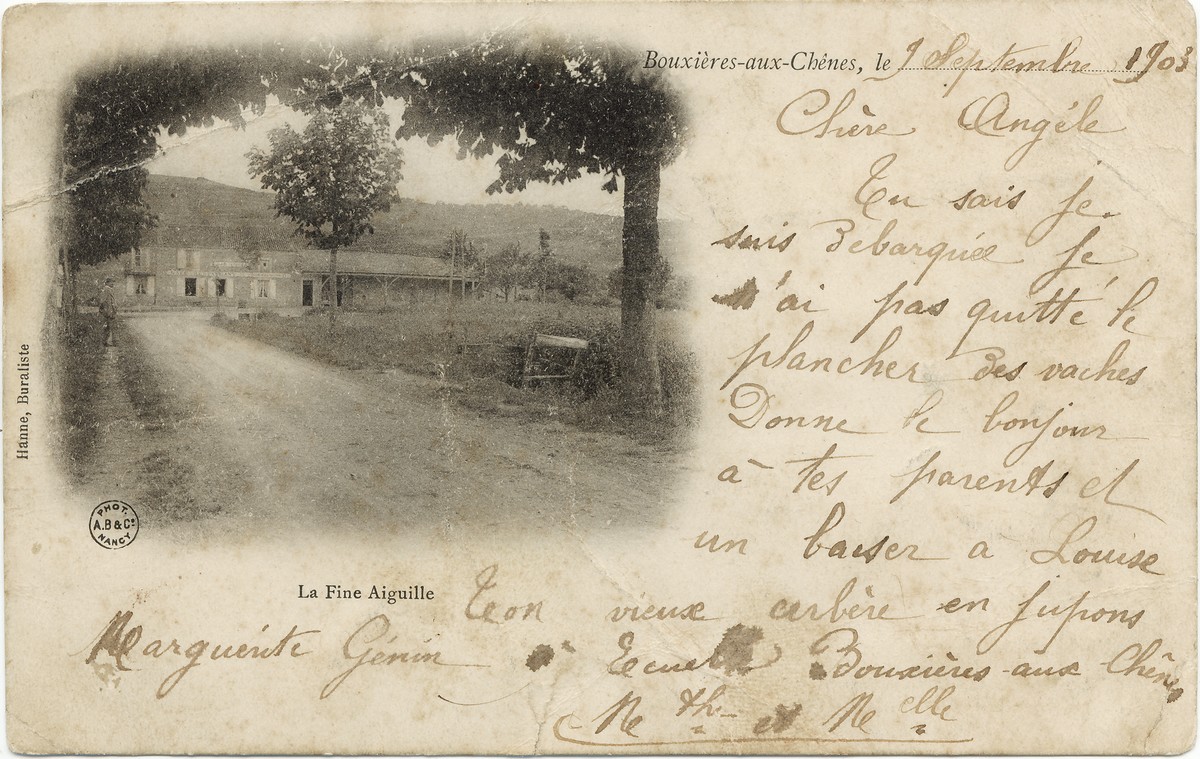 Bouxières-aux-Chênes, le 9 Septembre 1903
Chère Angéle
Tu sais je
suis debarquée je
n'ai pas quitté le
plancher des vaches
Donne le bonjour
à tes parents et
un baiser a Louise
Ton vieux cerbère en jupons
Marguerite Génin à Ecuelle Bouxières-aux-Chênes
Mthe et Melle
La Fine Aiguille
Hanne, Buraliste
PHOT.
A.B & Cie
NANCY